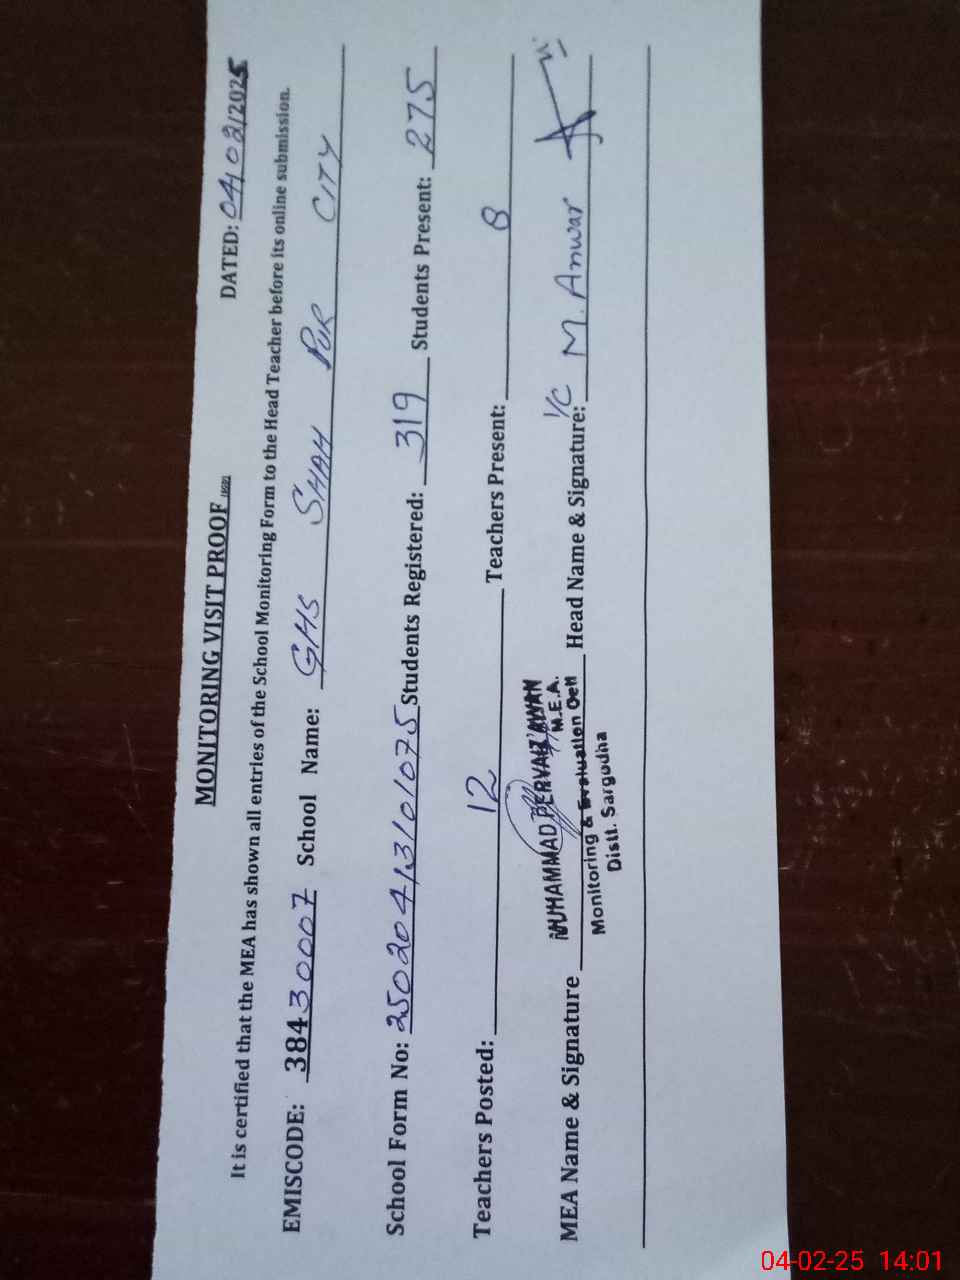 MONITORING VISIT PROOF
DATED: 04/02/2025
It is certified that the MEA has shown all entries of the School Monitoring Form to the Head Teacher before its online submission.
EMISCODE: 38430007 School Name: GHS SHAH PUR CITY
School Form No: 25020413101075 Students Registered: 319 Students Present: 275
Teachers Posted: 12 Teachers Present: 8
MEA Name & Signature Head Name & Signature: I/C M. Anwar
MUHAMMAD PERVAIZ AWAN
M.E.A.
Monitoring & Evaluation Cell
Distt. Sargodha
04-02-25 14:01